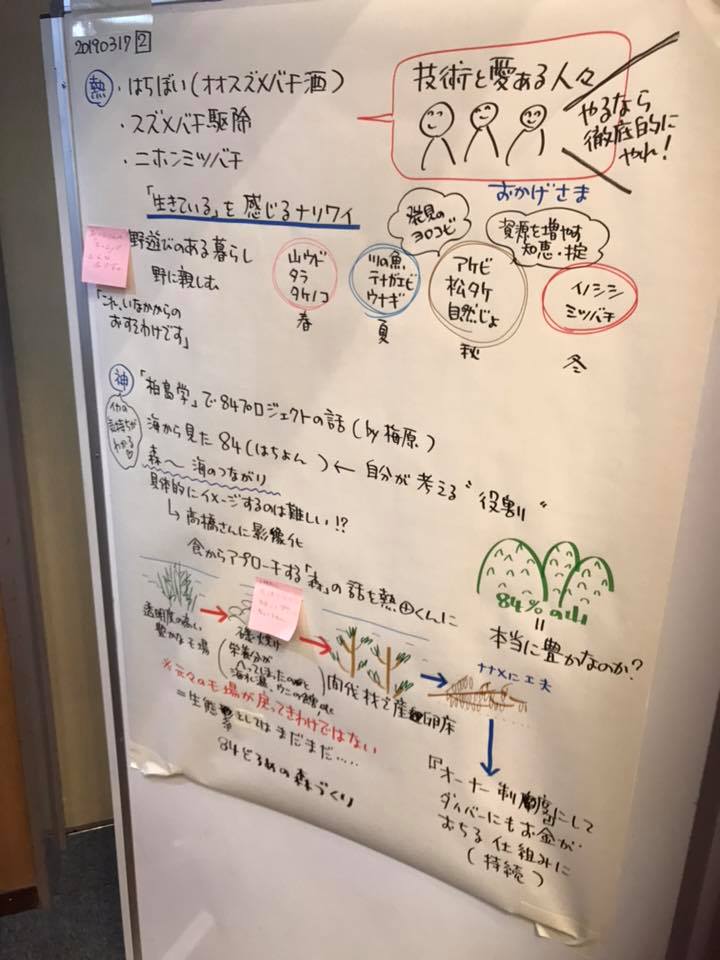 20190317 2
熱
・はちぼい(オオスズメバチ酒)
・スズメバチ駆除
・ニホンミツバチ
技術と愛ある人々
やるなら
徹底的に
やれ!
おかげさま
「生きている」を感じるナリワイ
野遊びのある暮らし
野に親しむ
「これ、いなかからの
おすそわけです」
山ウド
タラ
タケノコ
春
ツの魚
テナガエビ
ウナギ
夏
発見の
ヨロコビ
アケビ
松タケ
自然じょ
秋
資源を増やす
知恵・掟
イノシシ
ミツバチ
冬
神
イカの
気持ちが
わかる
「柏島学」で84プロジェクトの話(by 梅原)
海から見た84(はちよん)← 自分が考える"役割"
森〜海のつながり
具体的にイメージするのは難しい!?
↳高橋さんに影像化
食からアプローチする「森」の話を熱田くんに
84%の山
=
本当に豊かなのか?
透明度の高い
豊かなモ場
→
磯焼け
栄養分が
へってしまったのや
海水温、ウニの食害,etc
→
間伐材で産卵床
→
ナナメに工夫
※元々のモ場が戻ってきたわけではない
=生態系としてはまだまだ…..
84どるめの森づくり
『オーナー制度』にして
ダイバーにもお金が
おちる仕組みに
(持続)